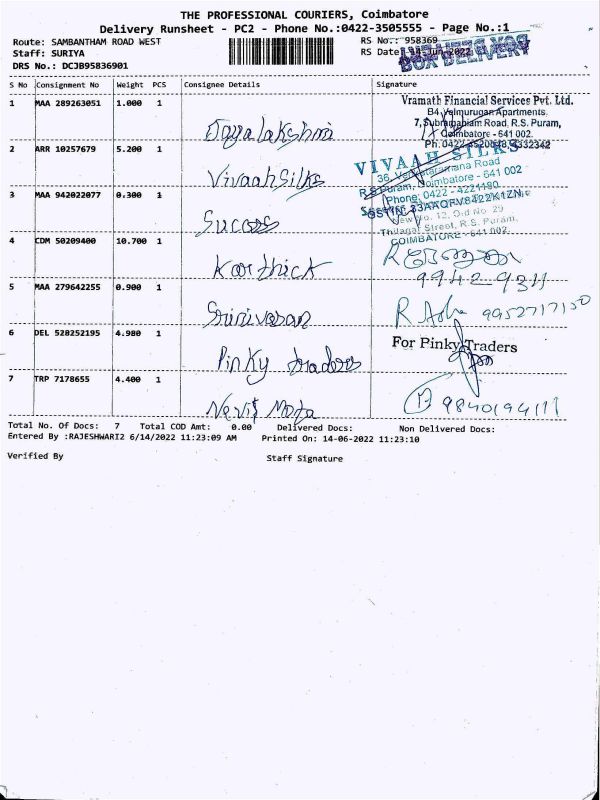 THE PROFESSIONAL COURIERS, Coimbatore
Delivery Runsheet - PC2 - Phone No.:0422-3505555 - Page No.:1
Route: SAMBANTHAM ROAD WEST
RS No.: 958369
Staff: SURIYA
RS Date: 14-Jun-2022
BOX DELIVERY
DRS No.: DCJB95836901
S No Consignment No Weight PCS Consignee Details Signature
1 MAA 289263051 1.000 1 Jayalakshmi
Vramath Financial Services Pvt. Ltd.
B4, Velmurugan Apartments,
7, Subramaniam Road, R.S. Puram,
Coimbatore - 641 002.
2 ARR 10257679 5.200 1 Vivaah Silks
VIVAAH SILKS
36, Venkataramana Road
R.S Puram, Coimbatore - 641 002
Phone: 0422 - 4221190
GSTIN:33AAQFV8422K1ZN
3 MAA 942022077 0.300 1 Success
New No. 12, Old No. 29
Thilagar Street, R.S. Puram,
COIMBATORE - 641 002.
4 CDM 50209400 10.700 1 Karthick
99429311
5 MAA 279642255 0.900 1 Srinivasan
R Asha 9952717150
6 DEL 528252195 4.980 1 Pinky traders
For Pinky Traders
7 TRP 7178655 4.400 1
9840194111
Total No. Of Docs: 7 Total COD Amt: 0.00 Delivered Docs: Non Delivered Docs:
Entered By :RAJESHWARI2 6/14/2022 11:23:09 AM Printed On: 14-06-2022 11:23:10
Verified By Staff Signature